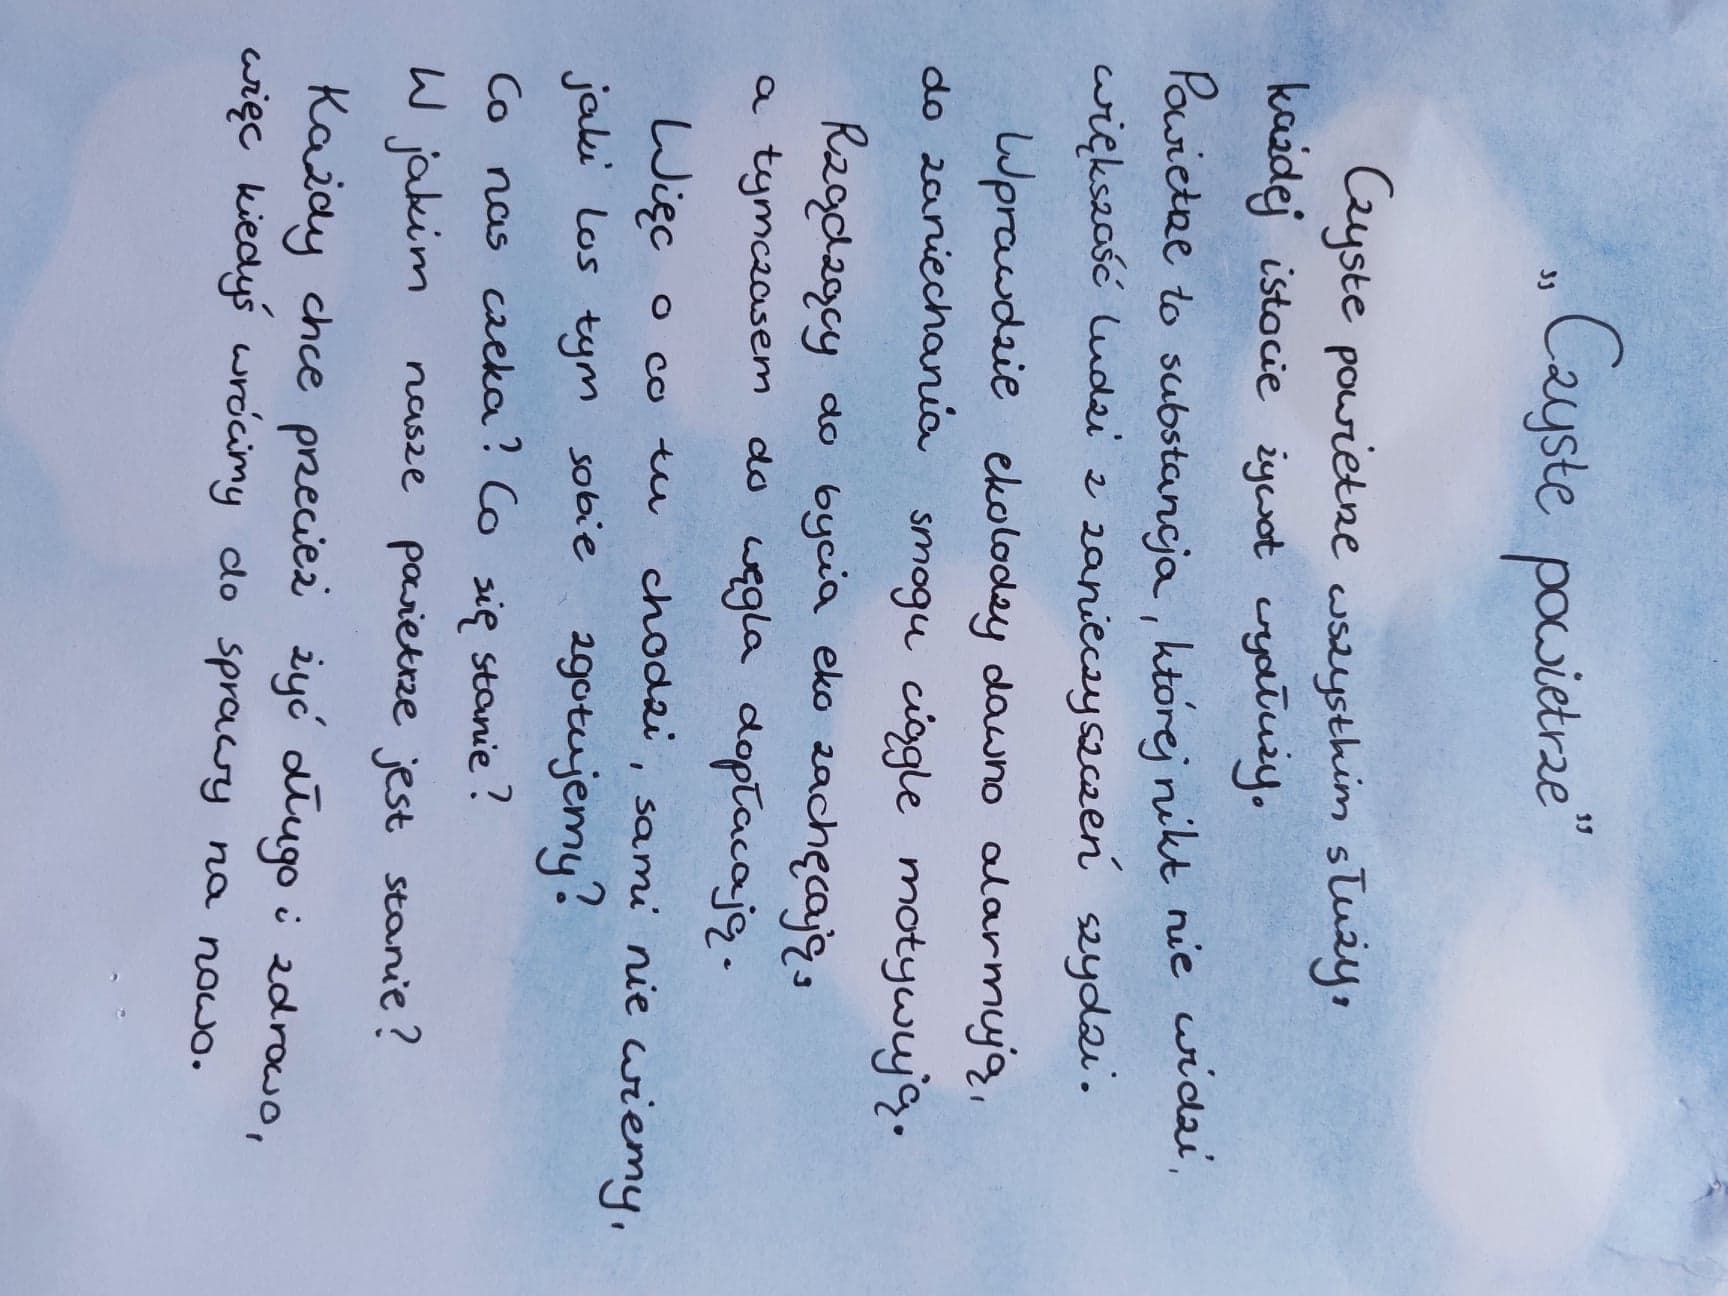 "Czyste powietrze"
Czyste powietrze wszystkim służy,
każdej istocie żywot wydłuży.
Powietrze to substancja, której nikt nie widzi,
większość ludzi z zanieczyszczeń szydzi.
Wprawdzie ekolodzy dawno alarmują,
do zaniechania smogu ciągle motywują.
Rządzący do bycia eko zachęcają,
a tymczasem do węgla dopłacają.
Więc o co tu chodzi, sami nie wiemy,
jaki los tym sobie zgotujemy?
Co nas czeka? Co się stanie?
W jakim nasze powietrze jest stanie?
Każdy chce przecież żyć długo i zdrowo,
więc kiedyś wrócimy do sprawy na nowo.